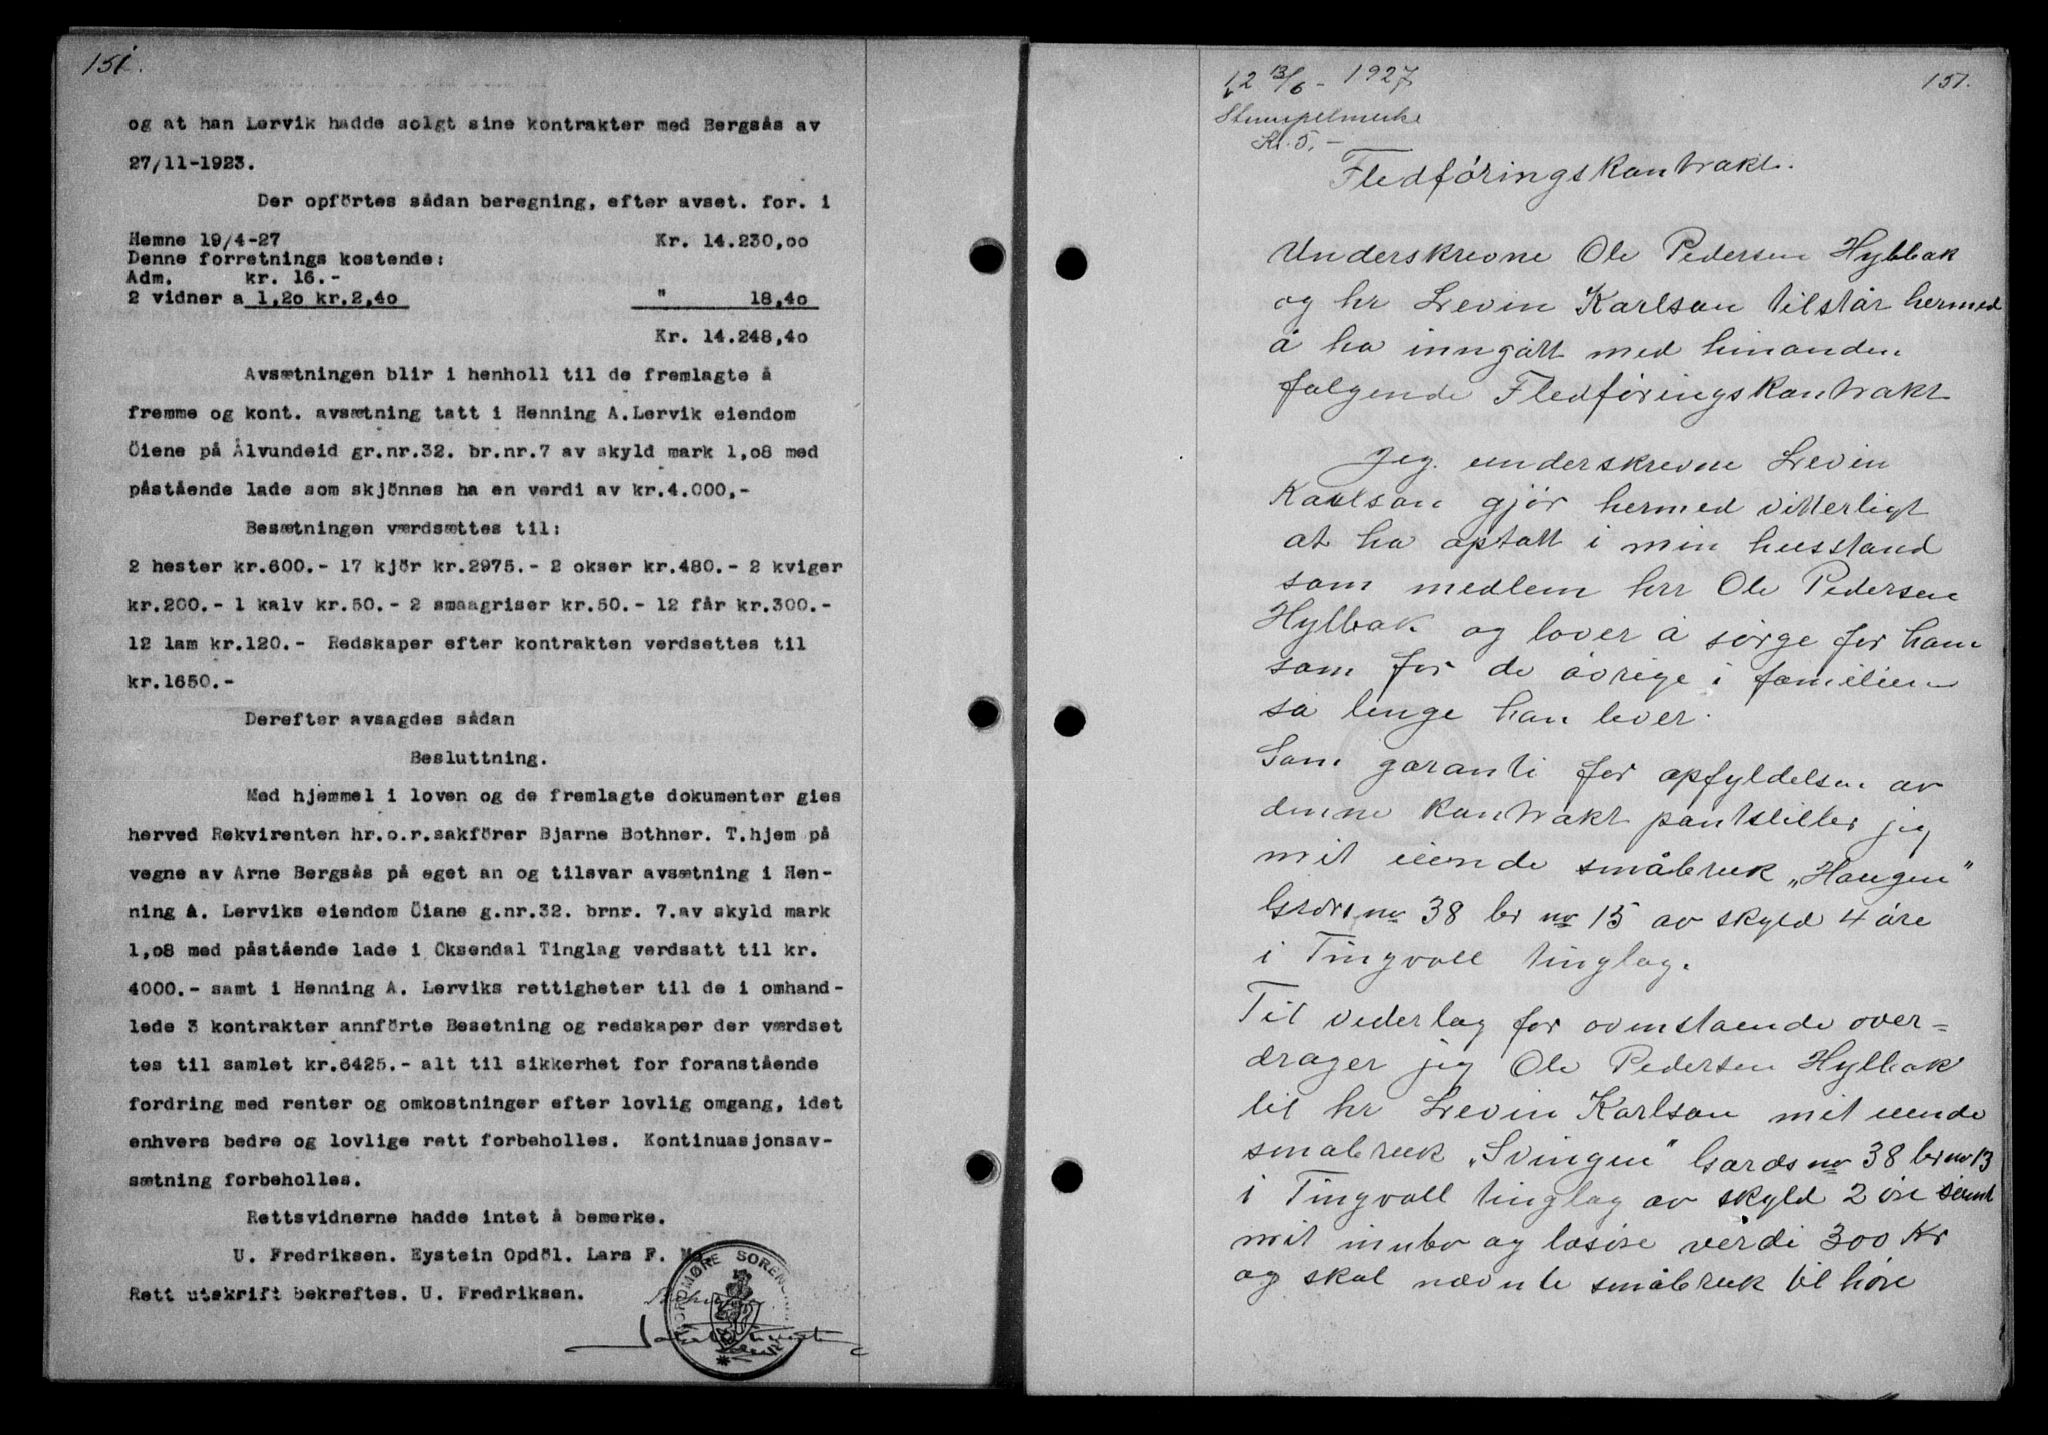 151.
og at han Lervik hadde solgt sine kontrakter med Bergsås av
27/11-1923.
Der opförtes sådan beregning, efter avset. for. i
Hemne 19/4-27 Kr. 14.230,00
Denne forretnings kostende:
Adm. kr. 16.-
2 vidner a 1,20 kr.2,40 " 18,40
Kr. 14.248,40
Avsætningen blir i henholl til de fremlagte å
fremme og kont. avsætning tatt i Henning A.Lervik eiendom
Öiene på Ålvundeid gr.nr.32. br.nr.7 av skyld mark 1,08 med
påstående lade som skjönnes ha en verdi av kr.4.000,-
Besætningen værdsættes til:
2 hester kr.600.- 17 kjör kr.2975.- 2 okser kr.480.- 2 kviger
kr.200.- 1 kalv kr.50.- 2 smaagriser kr.50.- 12 får kr.300.-
12 lam kr.120.- Redskaper efter kontrakten verdsettes til
kr.1650.-
Derefter avsagdes sådan
Besluttning.
Med hjemmel i loven og de fremlagte dokumenter gies
herved Rekvirenten hr.o.r.sakförer Bjarne Bothner. T.hjem på
vegne av Arne Bergsås på eget an og tilsvar avsætning i Hen-
ning A. Lerviks eiendom Öiane g.nr.32. brnr. 7.av skyld mark
1,08 med påstående lade i Öksendal Tinglag verdsatt til kr.
4000.- samt i Henning A. Lerviks rettigheter til de i omhand-
lede 3 kontrakter annförte Besetning og redskaper der værdset
tes til samlet kr.6425.- alt til sikkerhet for foranstående
fordring med renter og omkostninger efter lovlig omgang, idet
enhvers bedre og lovlige rett forbeholles. Kontinuasjonsav-
sætning forbeholles.
Rettsvidnerne hadde intet å bemerke.
U. Fredriksen. Eystein Opdöl. Lars F. Mo
Rett utskrift bekreftes. U. Fredriksen.
NORDMØRE SORENSKRIVERI
12 13/6 - 1927 151.
Stempelmerke
Kr. 5,-
Fledføringskontrakt.
Underskrevne Ole Pedersen Hylbak
og hr Levin Karlson tilstår hermed
å ha inngått med hinanden
følgende Fledføringskontrakt
Jeg underskrevne Levin
Karlson gjør hermed vitterligt
at ha optatt i min husstand
som medlem hrr Ole Pedersen
Hylbak og lover å sørge for ham
som for de øvrige i familien
så lenge han lever.
Som garanti for opfyldelsen av
denne kontrakt pantstiller jeg
mit eiende småbruk „Haugen"
Gards no 38 br no 15 av skyld 4 øre
i Tingvoll tinglag.
Til vederlag for ovenstaende over=
drager jeg Ole Pedersen Hylbak
til hr Levin Karlson mit eiende
småbruk „Svingen" Gards no 38 br no 13
i Tingvoll tinglag av skyld 2 øre samt
mit innbo og løsøre verdi 300 Kr
og skal nævnte småbruk tilhøre